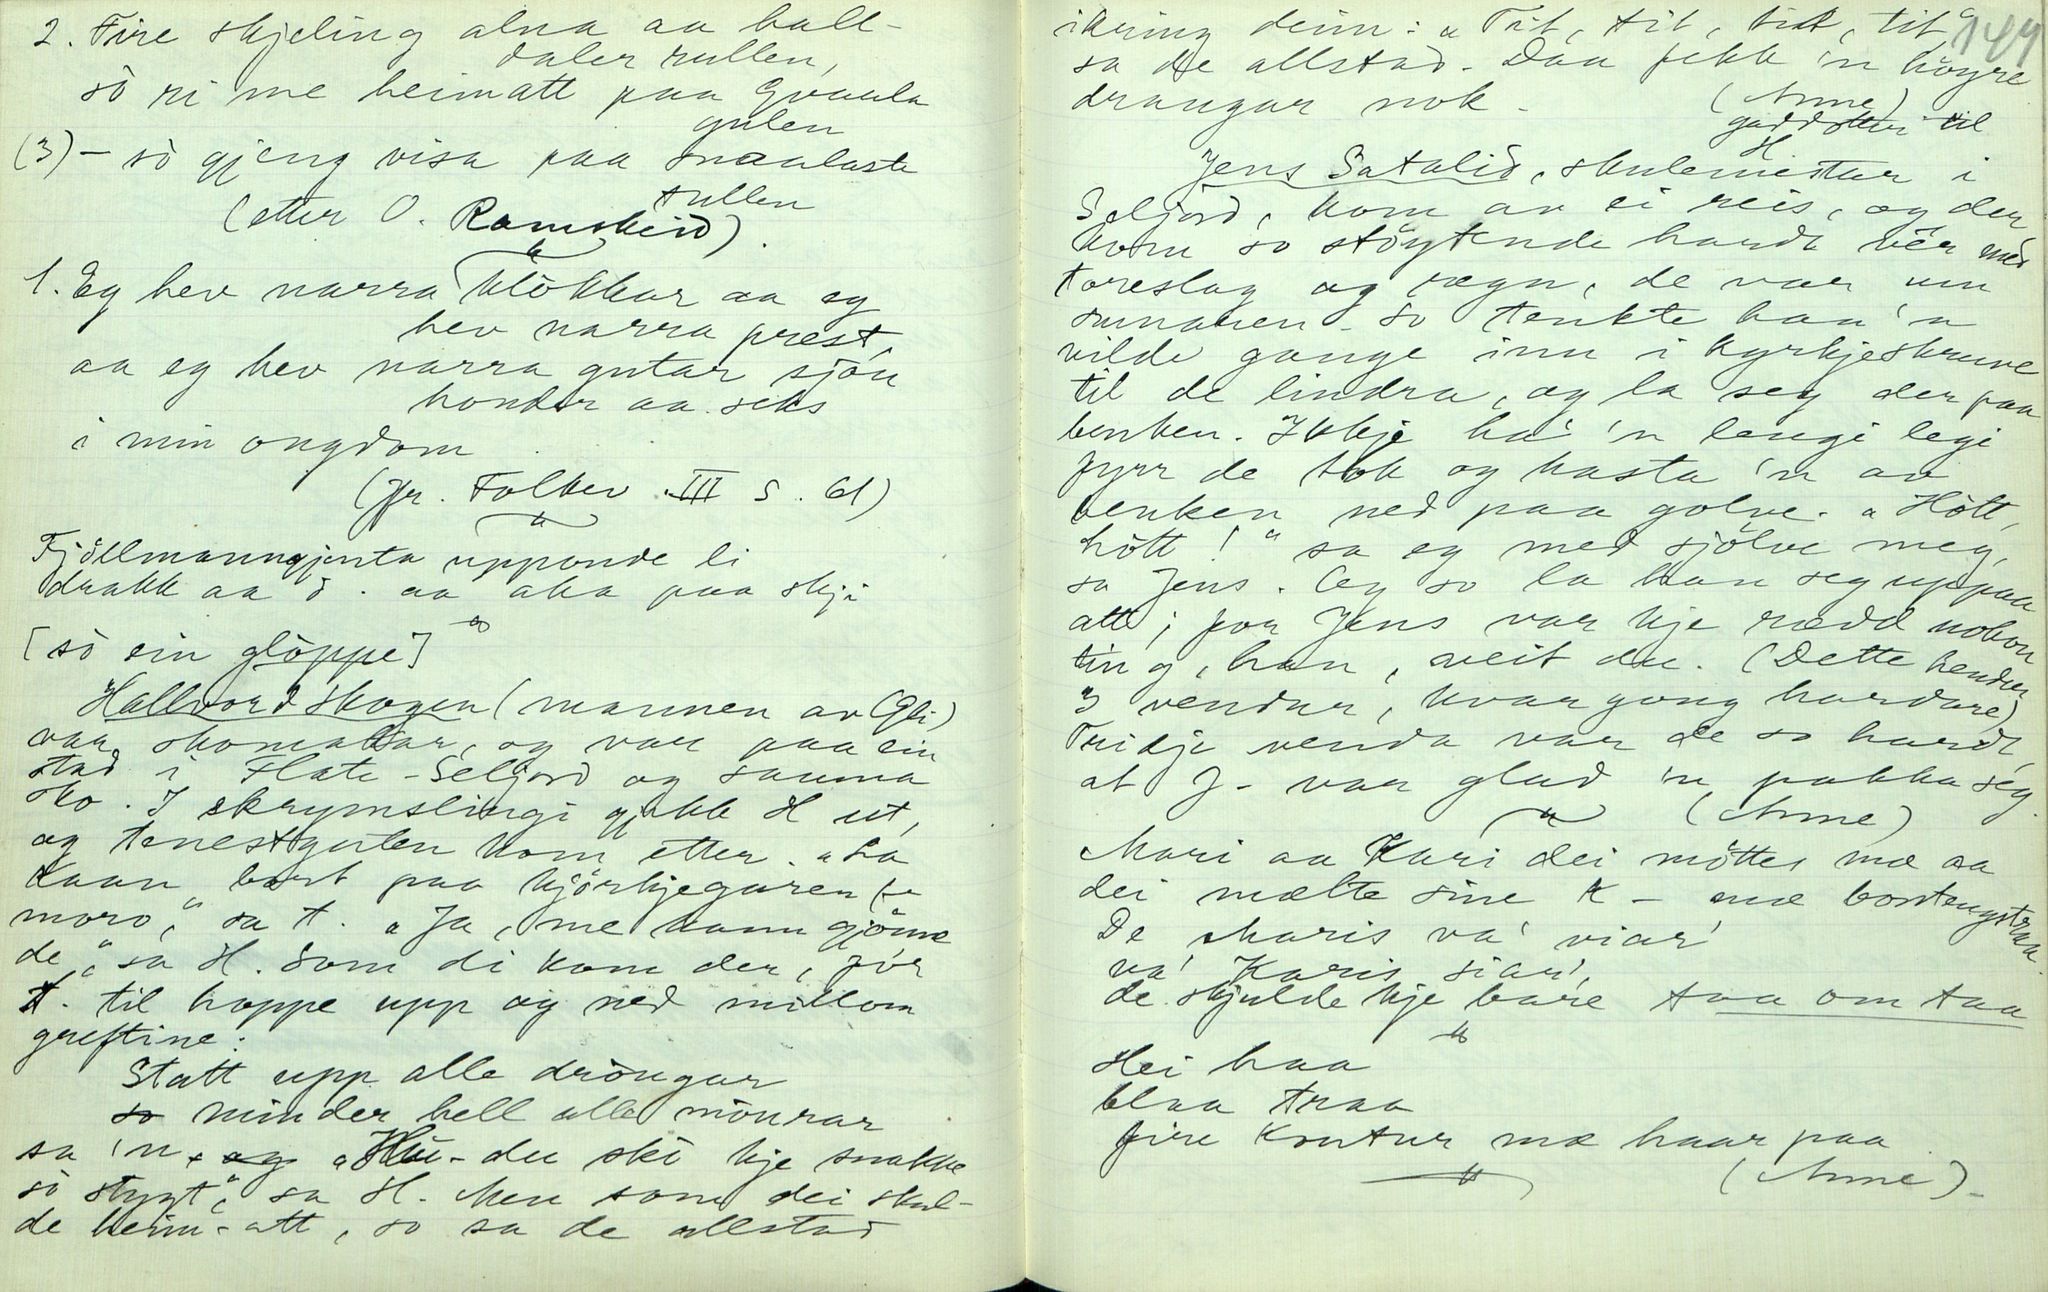 2. Fire skjeling alna aa hall-
daler rullen,
so ri me heimatt paa Graaula
gulen
(3) – so gjeng visa paa snaalaste
tullen
(etter O. Ramskeid).
1. Eg hev narra klökkar aa eg
hev narra prest,
aa eg hev narra gutar sjöu
hondr aa seks
i min ongdom
(jfr. Folkev. III s. 61)
Fjöllmanngjenta uppunde li
drakk aa ö. aa aka paa skji
[so ein glöppe]
Hallvord Skogen (mannen av Gli)
var skomakar, og var paa ein
stad i Flate-Seljord og sauma
sko. I skrymslingi gjekk H ut,
og tenestguten kom etter. „La
kaan bert paa kjörkjegaren fe
moro," sa t. „Ja, me kann gjöma
de," sa H. Som di kom der, fór
t. til hoppe upp og ned millom
greftine:
Statt upp alle dröugar
so minder hell alle möurar
sa 'n, og „Hu- du ski kje snakke
so stygt", sa H. Men som dei skul-
de heim-att, so sa de allstad
ikring deim: „Tit, tit, tit, tit" 149
sa de allstad. Daa fekk 'n höyre
draugar nok. (Anne)
guddotter til
H
Jens Satalid, skulemeistar i
Seljord, kom av ei reis, og der
kom so stöytende hardt vêr med
toreslag og regn, de var um
sumaren. So tenkte haa 'n
vilde gange inn i kyrkjeskruve
til de lindra, og la seg der paa
benken. Ikkje ha' 'n lengi legi
fyrr de tok og kasta 'n av
benken ned paa golve. „Hött,
hött!" sa eg med sjölve meg,
sa Jens. Og so la han seg uppaa
att; for Jens var kje rædd nokon
ting, han, veit du. (Dette hender
3 vendur, kvar gong hardare)
Tridje venda var de so hardt,
at J. var glad 'n pakka seg.
(Anne)
Mari aa Kari dei möttes mæ aa
dei mælte sine K – mæ bordtengstraa.
De Maris va' viar'
va' Karis siar',
de skjulde kje bare tvo om taa
Hei haa
blaa traa
fire kontur mæ haar paa
(Anne).